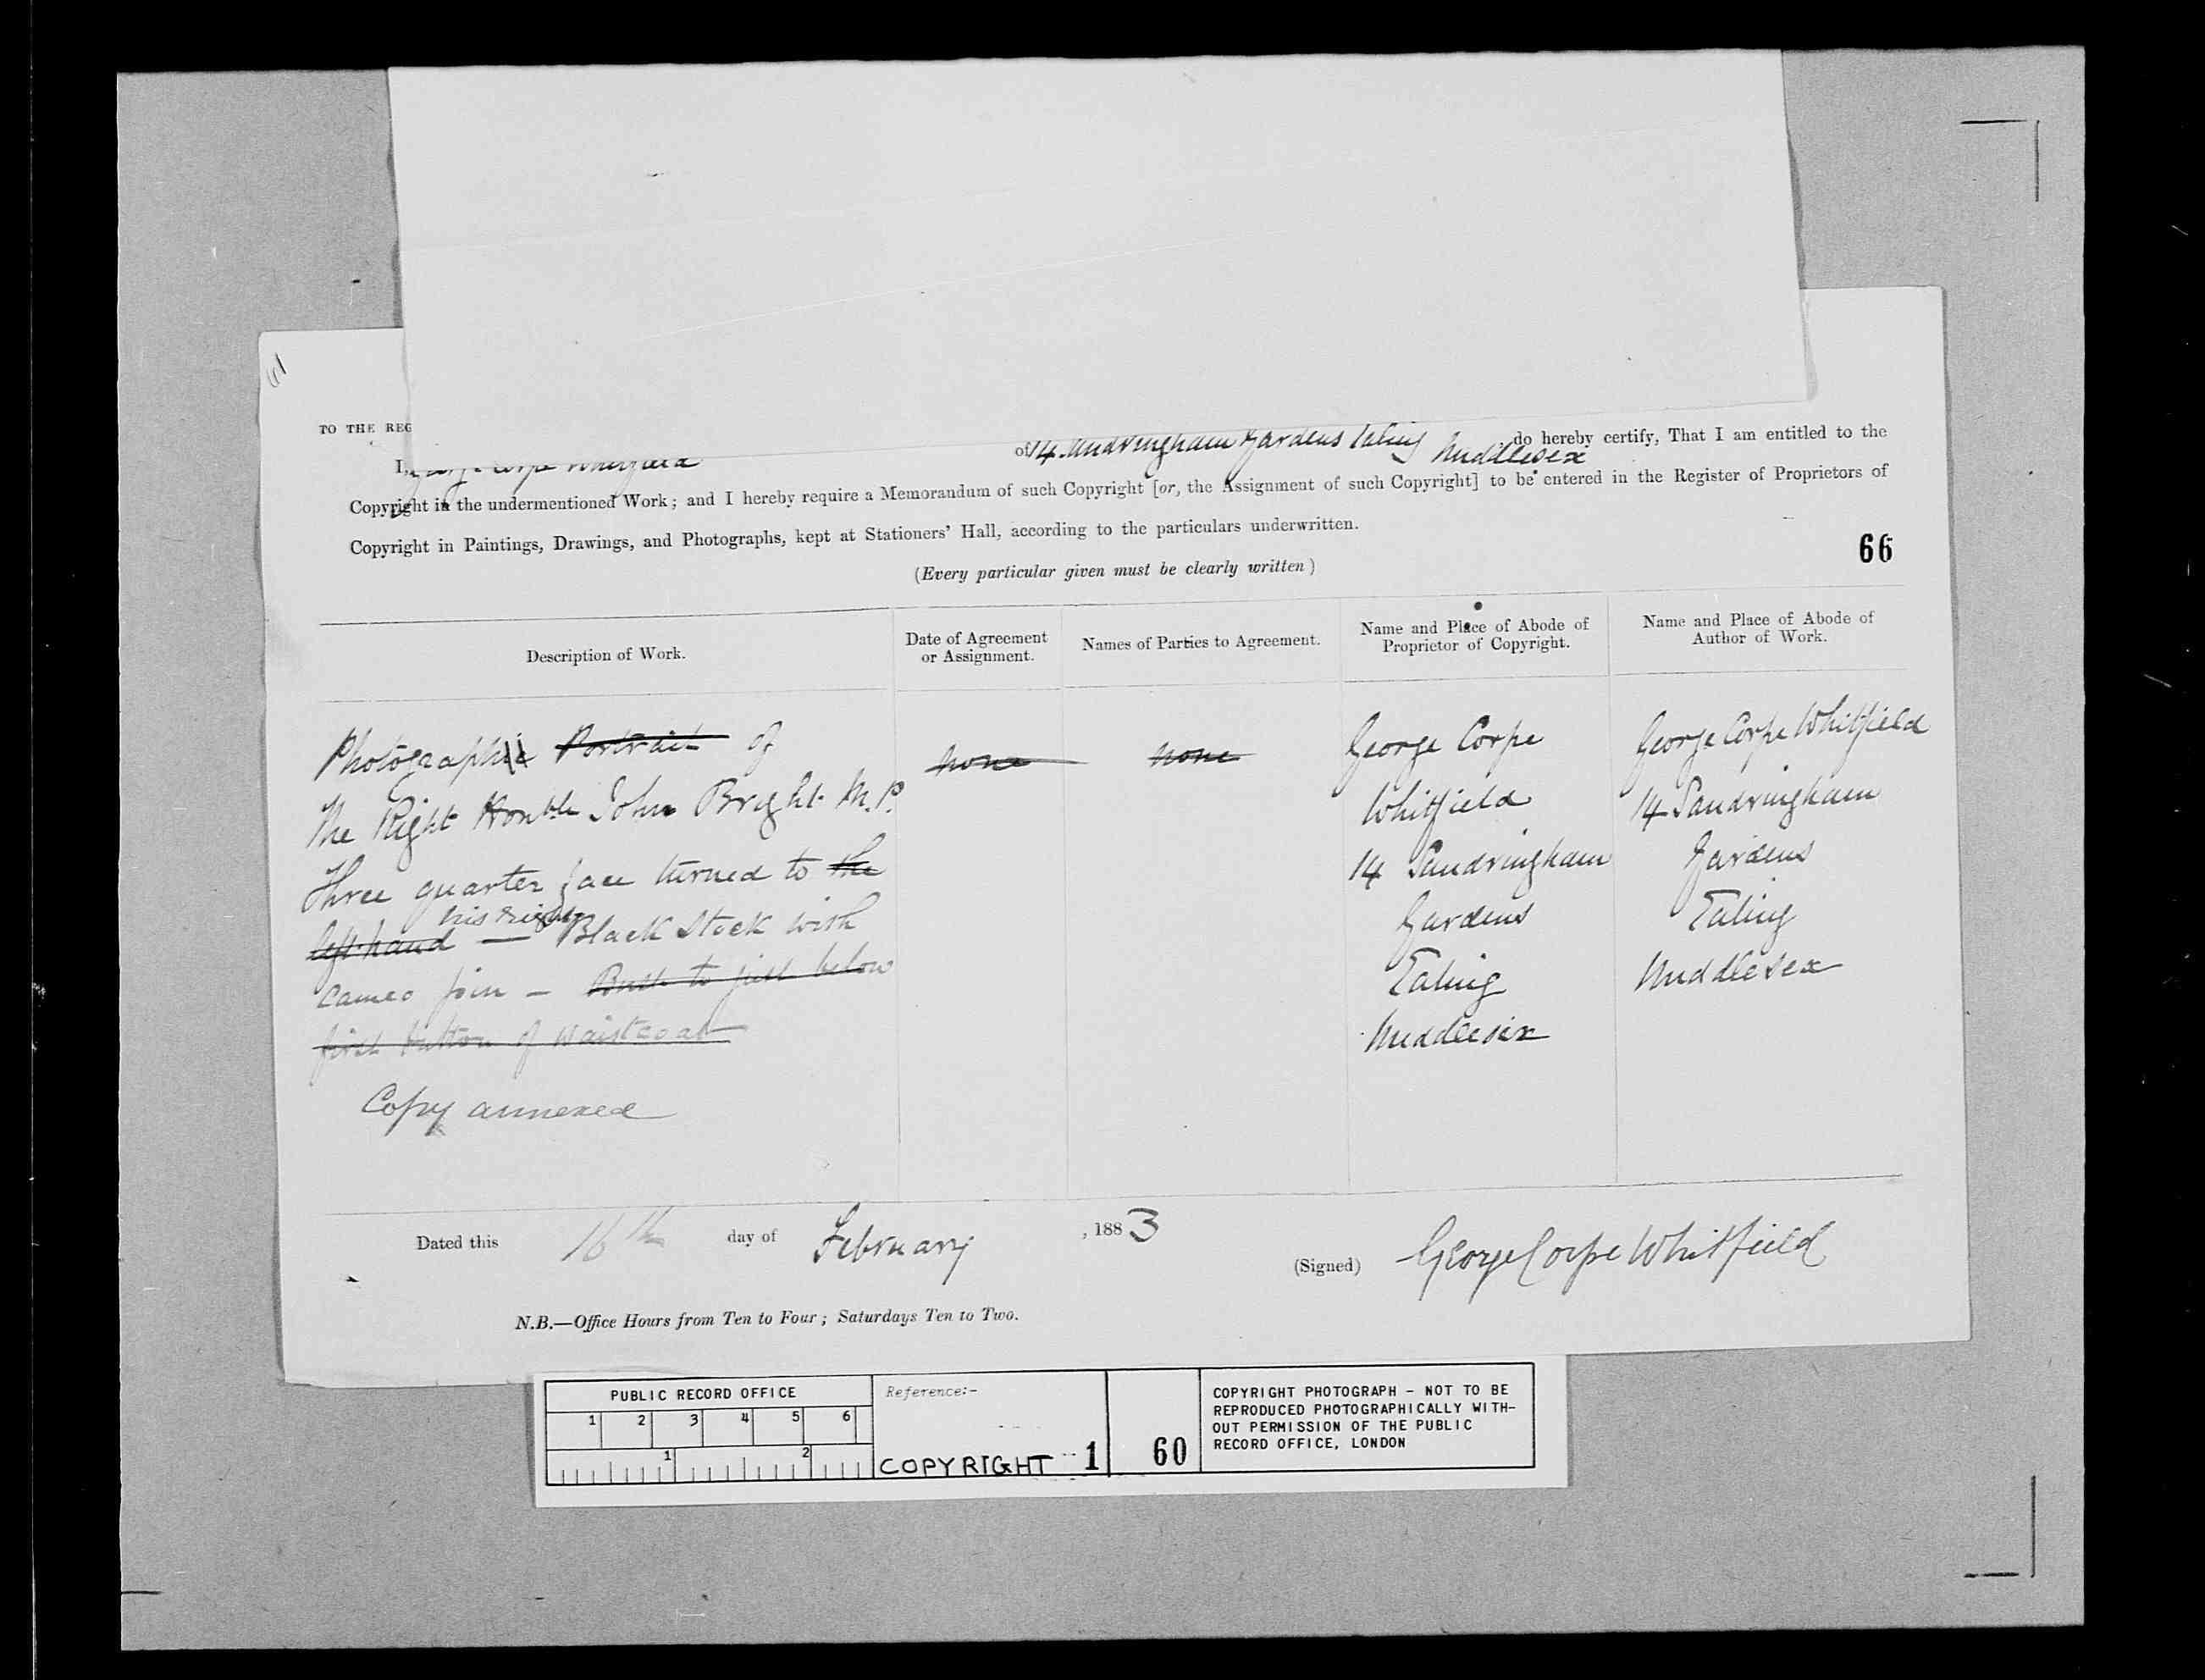 TO THE REG
I, George Corpe Whitfield of 14 Sandringham Gardens Ealing Middlesex do hereby certify, That I am entitled to the
Copyright in the undermentioned Work; and I hereby require a Memorandum of such Copyright [or, the Assignment of such Copyright] to be entered in the Register of Proprietors of
Copyright in Paintings, Drawings, and Photographs, kept at Stationers' Hall, according to the particulars underwritten.
66
(Every particular given must be clearly written)
Description of Work.
Date of Agreement
or Assignment.
Names of Parties to Agreement.
Name and Place of Abode of
Proprietor of Copyright.
Name and Place of Abode of
Author of Work.
Photographic Portrait of
The Right Honble John Bright M.P.
Three quarter face turned to the
his right
left hand — Black Stock with
Cameo pin - Bust to just below
first button of waistcoat
Copy annexed
none
none
George Corpe
Whitfield
14 Sandringham
Gardens
Ealing
Middlesex
George Corpe Whitfield
14 Sandringham
Gardens
Ealing
Middlesex
Dated this 16th day of February, 1883
(Signed) George Corpe Whitfield
N.B.—Office Hours from Ten to Four; Saturdays Ten to Two.
PUBLIC RECORD OFFICE
1 2 3 4 5 6
1 2
Reference:-
COPYRIGHT 1
60
COPYRIGHT PHOTOGRAPH - NOT TO BE
REPRODUCED PHOTOGRAPHICALLY WITH-
OUT PERMISSION OF THE PUBLIC
RECORD OFFICE, LONDON